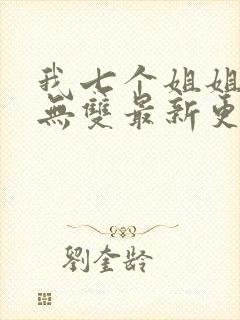 我七个姐姐
無雙最新更
劉奎齡